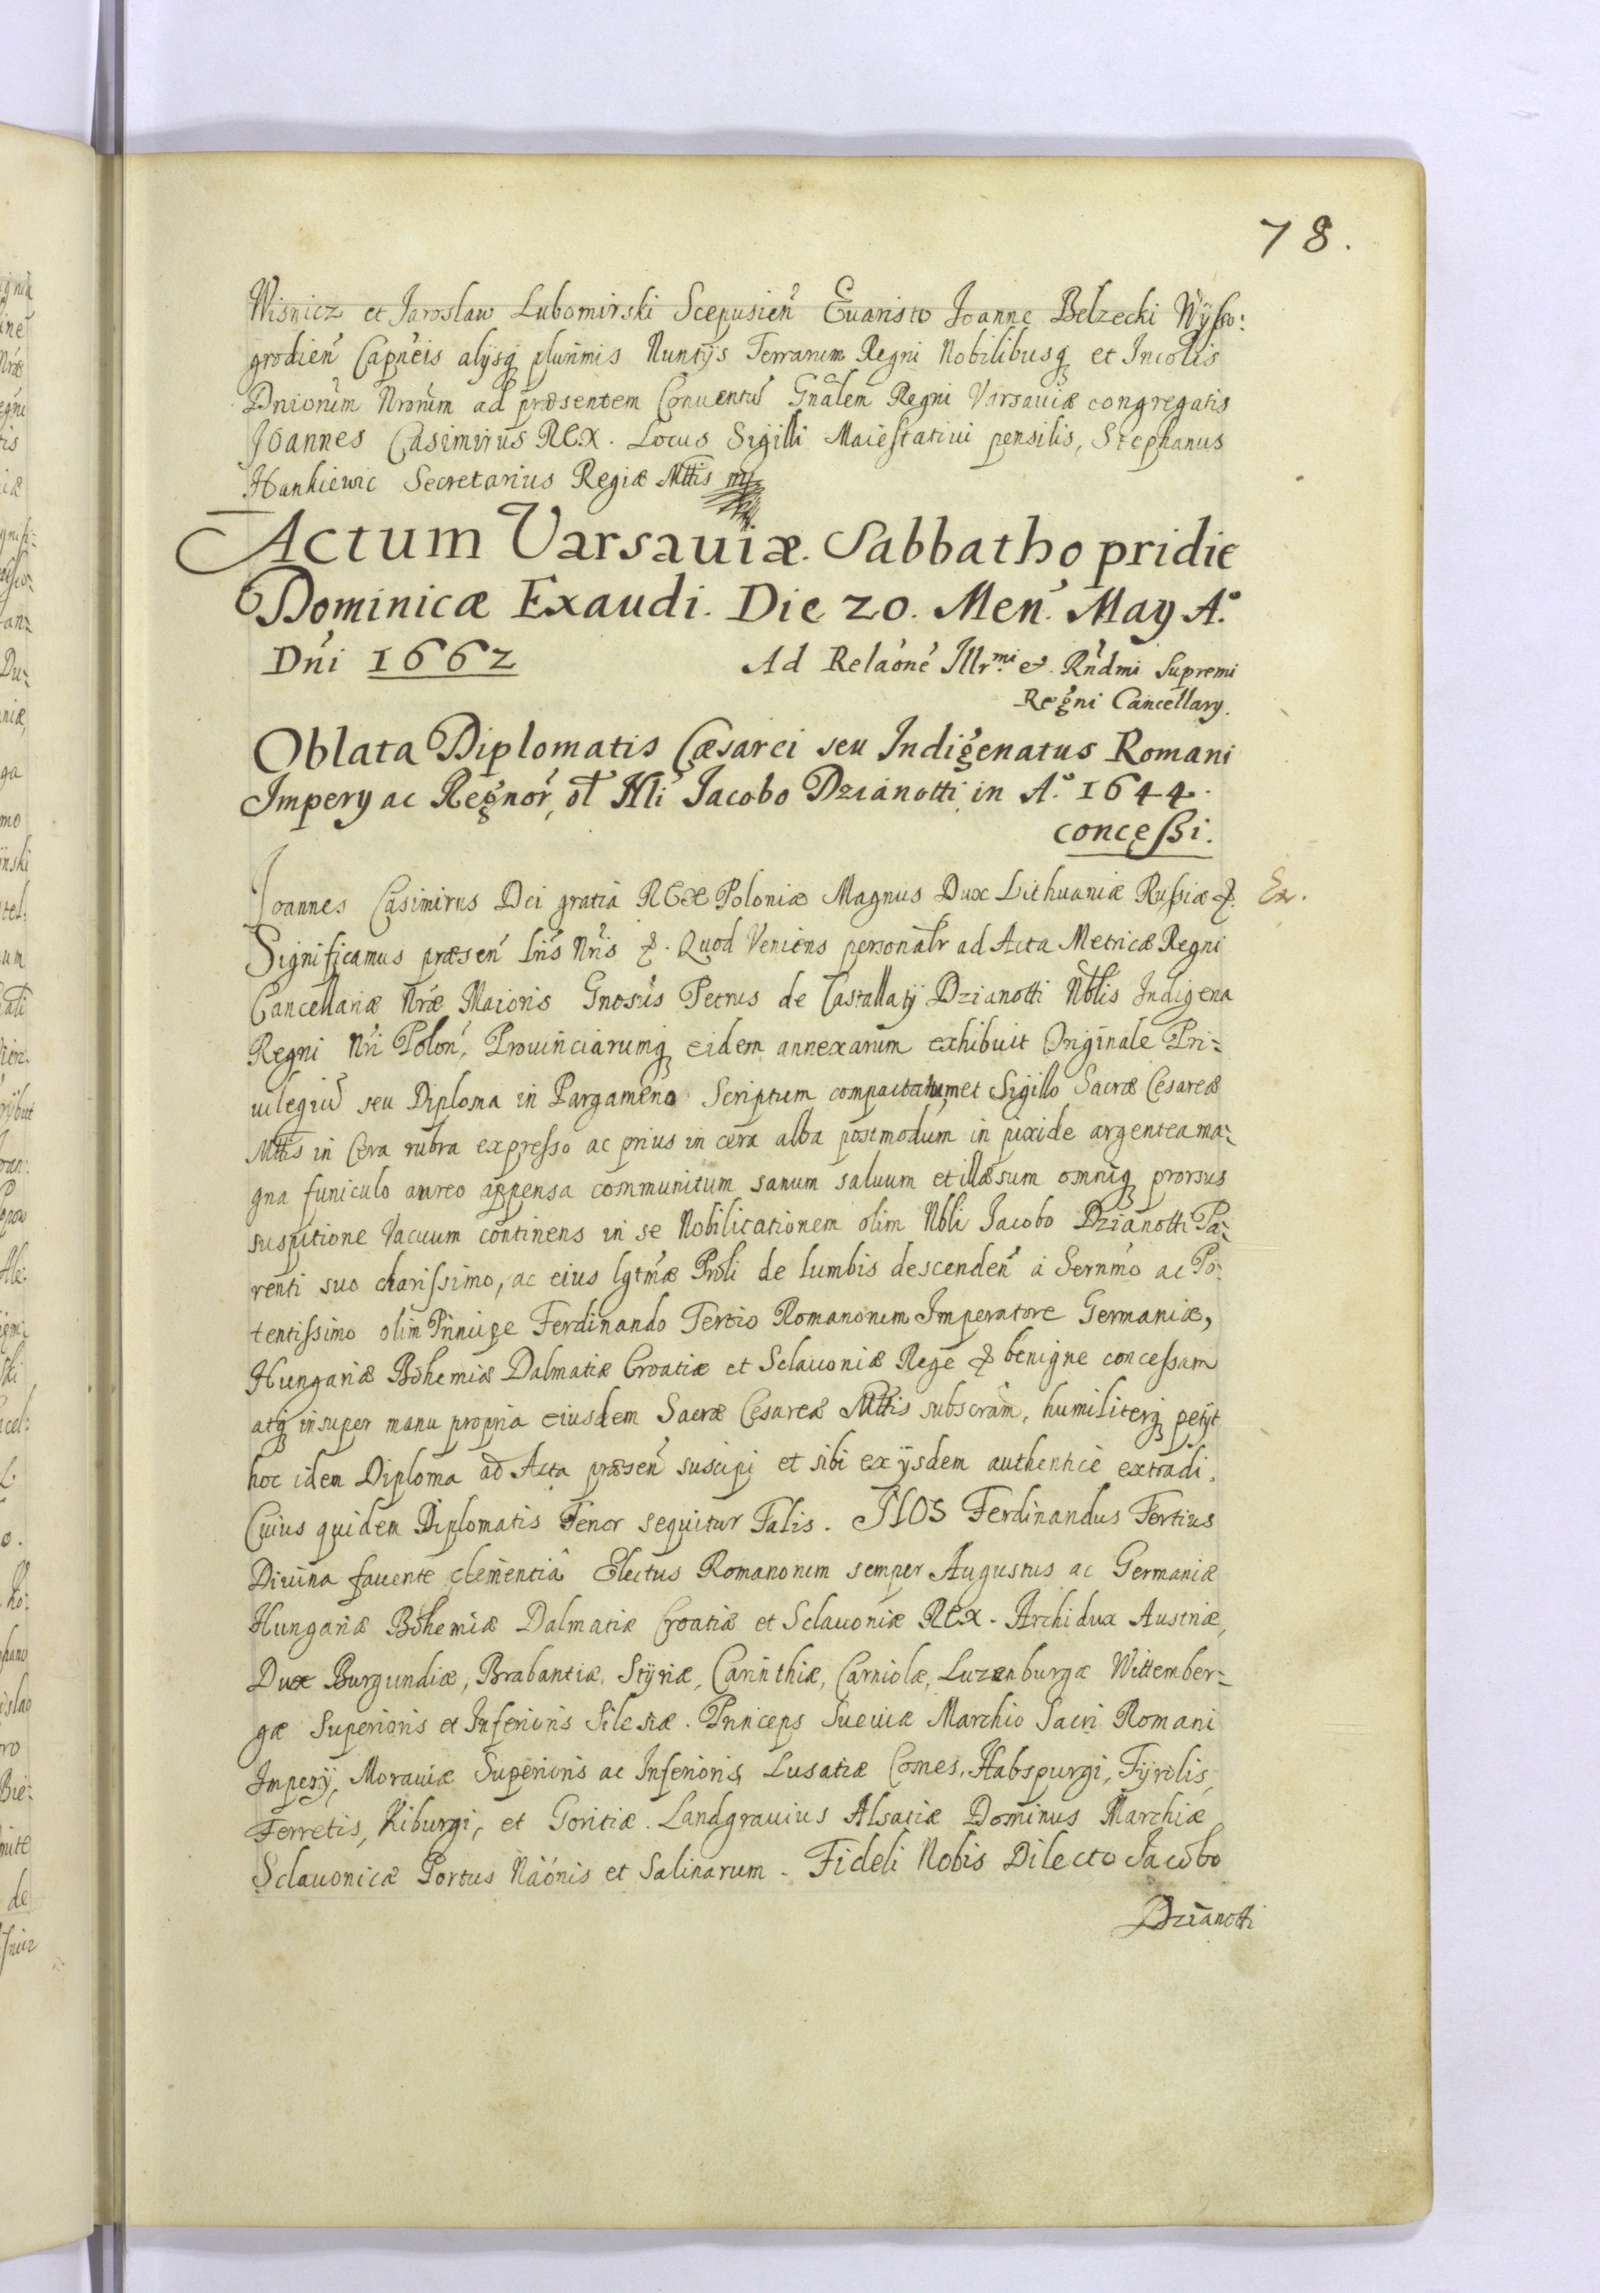 78.
Wisnicz et Jaroslaw Lubomirski Scepusien̄ Euaristo Joanne Belzecki Wÿsso:
grodien̄ Capn̄eis alÿsq̨ plurimis Nuntÿs Terrarum Regni Nobilibusq̨ et Incolis
Dn̄iorum Nrorum ad præsentem Conuentū Gn̄alem Regni Varsauiæ congregatis
Joannes Casimirus REX. Locus Sigilli Maiestatiui pensilis, Stephanus
Hankiewic Secretarius Regiæ Mttis mp
Actum Varsauiæ. Sabbatho pridie
Dominicæ Exaudi. Die 20. Men̄. May A.º
Dn̄i 1662
Ad Relaōnē Illr.mi et Rn̄dmi Supremi
Regni Cancellary.
Oblata Diplomatis Cæsarei seu Indigenatus Romani
Impery ac Regnor̄, ol̄ Nli Jacobo Dzianotti in A.º 1644.
concessi.
Joannes Casimirus Dei gratia REX Poloniæ Magnus Dux Lithuaniæ Russiæ &.
Ex.
Significamus præsen̄ lris Nris &. Quod Veniens personalr ad Acta Metricæ Regni
Cancellariæ Nræ Maioris Gnosus Petrus de Castallatÿ Dzianotti Nblis Indigena
Regni Nri Polon̄, Prouinciarumq̨ eidem annexarum exhibuit Originale Pri-
uilegiū seu Diploma in Pargameno Scriptum compactatumet Sigillo Sacræ Cesareæ
Mttis in Cera rubra expresso ac prius in cera alba postmodum in pixide argentea ma-
gna funiculo aureo appensa communitum sanum saluum et illæsum omniq̨ prorsus
suspitione Vacuum continens in se Nobilitationem olim Nbli Jacobo Dzianotti Pa-
renti suo charissimo, ac eius lgtmæ Proli de lumbis descenden̄ à Sernmo ac Po-
tentissimo olim Principe Ferdinando Tertio Romanorum Imperatore Germaniæ,
Hungariæ Bohemiæ Dalmatiæ Croatiæ et Sclauoniæ Rege & benigne concessam
atq̨ insuper manu propria eiusdem Sacræ Cesareæ Mttis subscram, humiliterq̨ petÿt
hoc idem Diploma ad Acta præsen̄ suscipi et sibi ex ÿsdem authenticè extradi.
Cuius quidem Diplomatis Tenor sequitur Talis. NOS Ferdinandus Tertius
Diuina fauente clementiâ Electus Romanorum semper Augustus ac Germaniæ
Hungariæ Bohemiæ Dalmatiæ Croatiæ et Sclauoniæ REX. Archidux Austriæ,
Dux Burgundiæ, Brabantiæ, Stÿriæ, Carinthiæ, Carniolæ, Luzenburgæ Wittember-
gæ Superioris et Inferioris Silesiæ. Princeps Sueuiæ Marchio Sacri Romani
Imperÿ, Morauiæ Superioris ac Inferioris Lusatiæ Comes, Habspurgi, Tÿrolis,
Ferretis, Kiburgi, et Goritiæ. Landgrauius Alsatiæ Dominus Marchiæ
Sclauonicæ Portus Naónis et Salinarum. Fideli Nobis Dilecto Jacobo
Dzianotti